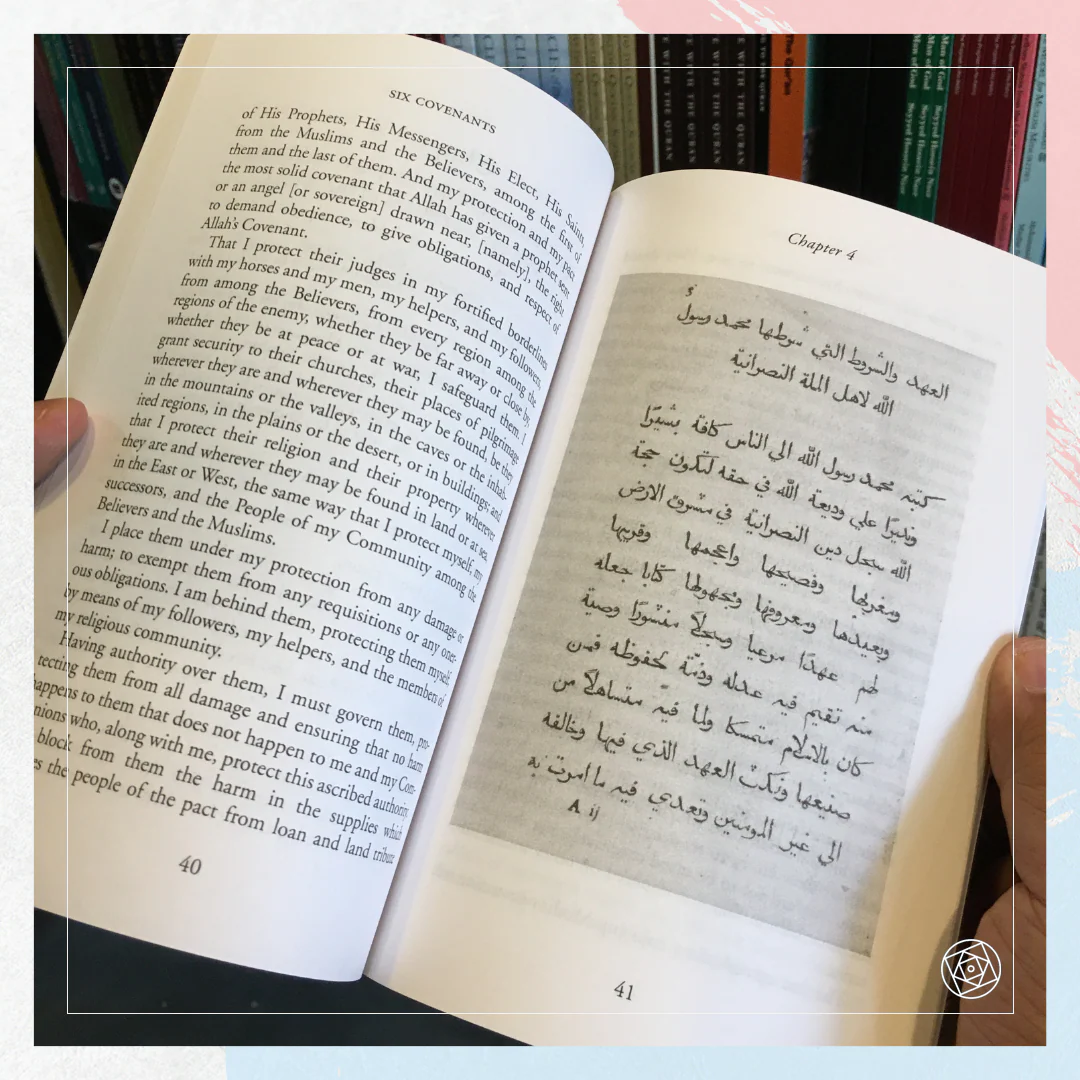 SIX COVENANTS
of His Prophets, His Messengers, His Elect, His Saints,
from the Muslims and the Believers, among the first of
them and the last of them. And my protection and my pact
the most solid covenant that Allah has given a prophet sent
or an angel [or sovereign] drawn near, [namely], the right
to demand obedience, to give obligations, and respect of
Allah's Covenant.
That I protect their judges in my fortified borderlines
with my horses and my men, my helpers, and my followers,
from among the Believers, from every region among the
regions of the enemy, whether they be far away or close by,
whether they be at peace or at war, I safeguard them. I
grant security to their churches, their places of pilgrimage
wherever they are and wherever they may be found, be they
in the mountains or the valleys, in the caves or the inhab-
ited regions, in the plains or the desert, or in buildings; and
that I protect their religion and their property wherever
they are and wherever they may be found in land or at sea,
in the East or West, the same way that I protect myself, my
successors, and the People of my Community among the
Believers and the Muslims.
I place them under my protection from any damage or
harm; to exempt them from any requisitions or any oner-
ous obligations. I am behind them, protecting them myself
by means of my followers, my helpers, and the members of
my religious community.
Having authority over them, I must govern them, pro-
tecting them from all damage and ensuring that no harm
happens to them that does not happen to me and my Com-
nions who, along with me, protect this ascribed authority
block from them the harm in the supplies which
es the people of the pact from loan and land tribute
40
Chapter 4
العهد والشروط التي شرطها محمد رسول
الله لاهل الملة النصرانية
كتبه محمد رسول الله الي الناس كافة بشيرًا
ونذيرًا علي وديعة الله في حقه لتكون حجة
الله سجل دين النصرانية في مشروق الارض
ومغربها وفصيحها واعجمها وقريبها
وبعيدها ومعروفها ومجهولها كتابا جعله
لهم عهدًا مرعيا وسجلاً منشورًا وصية
منه تقيم فيه عدله وذمّة محفوظه فمن
كان بالاسلام متمسكا ولما فيه متساهلاً من
ضيعها ونكث العهد الذي فيها وخالفه
الي غير المومنين وتعدي فيه ما امرت به
A ij
41
WITH THE QURAN
WITH THE QURAN
WITH THE QURAN
The Qur'an
Man of God
Man of God
Man of God
Seyyed Hossein Nasr
Seyyed Hossein Nasr
Seyyed Hossein Nasr